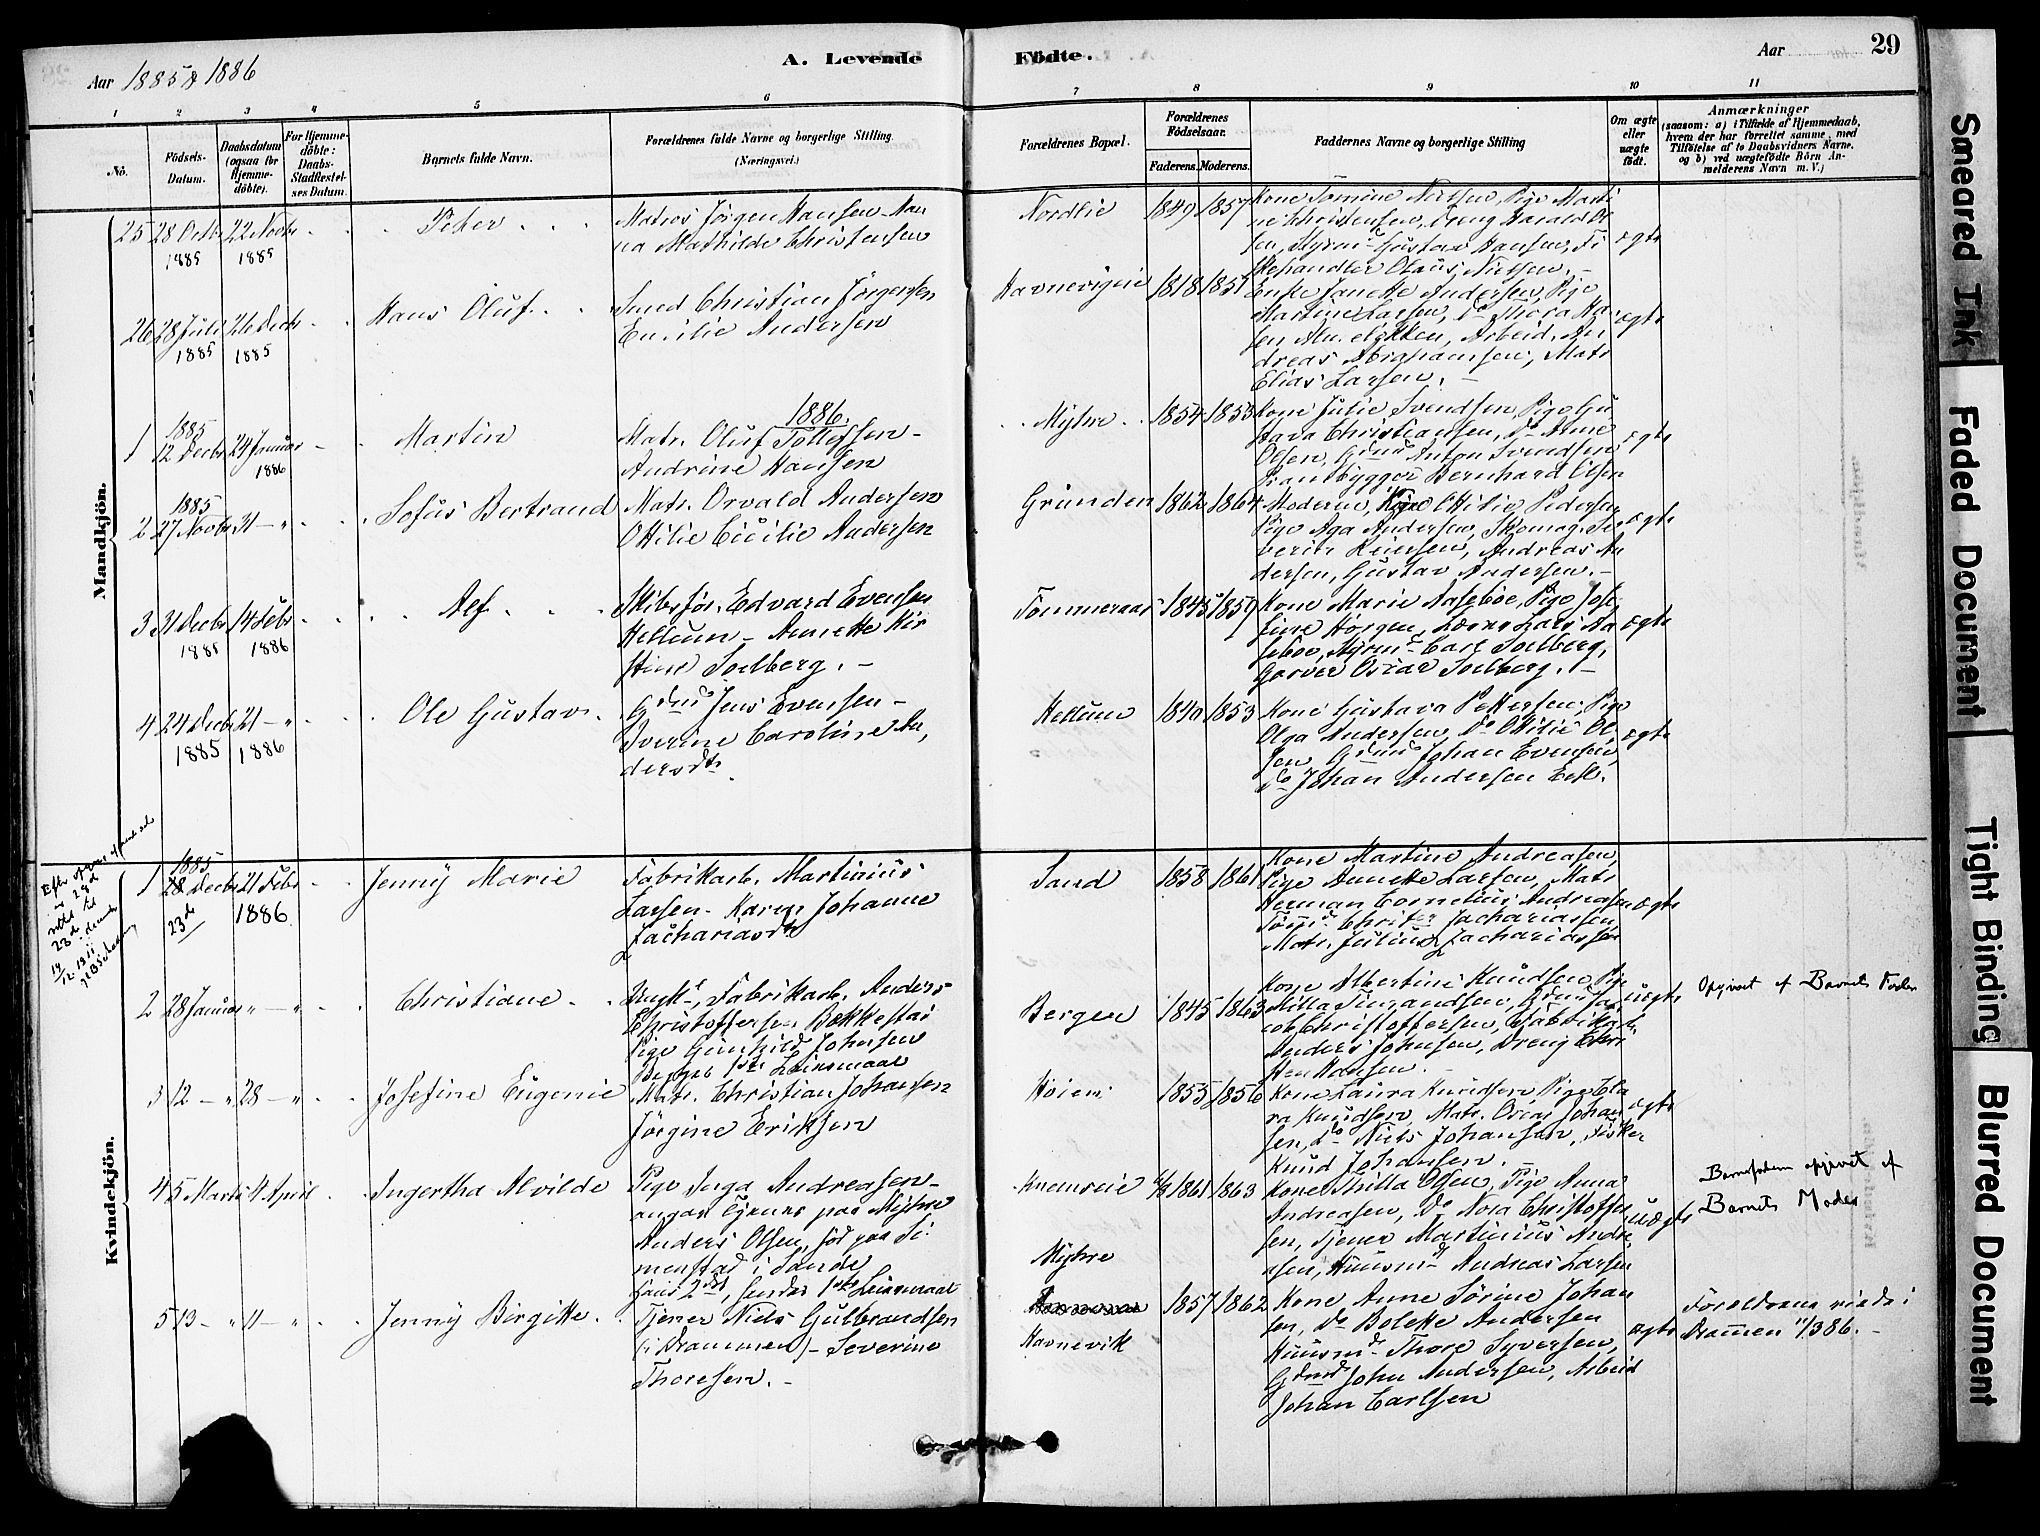 Aar 1885 & 1886
A. Levende
Fødte.
Aar
29
1 2 3 4 5 6 7 8 9 10 11
No.
Födsels-Datum.
Daabsdatum (ogsaa for hjemme-döbte).
For Hjemme-döbte: Daabs-Stadfæstelses Datum.
Barnets fulde Navn.
Forældrenes fulde Navne og borgerlige Stilling (Næringsvei.)
Forældrenes Bopæl.
Forældrenes Födselsaar.
Faderens. Moderens.
Faddernes Navne og borgerlige Stilling
Om ægte eller uægte födt.
Anmærkninger
(saasom: a) i Tilfælde af Hjemmedaab, hvem der har forrettet samme, med Tilföielse af to Daabsvidners Navne, og b) ved uægtefödte Börn Anmelderens Navn m. V.;
Mandkjön.
25 28 Octb 1885 22 Novbr 1885 Peter
Matros Jörgen Hansen - Han
na Mathilde Christensen
Nordlie 1849 1857
Kone Tomine Nielsen, Pige Marti
ne Christensen, Dreng Harald Ol
sen, Styrm. Gustav Hansen, Fi
skehandler Olaus Nielsen. -
ægte
26 28 Juli 1885 26 Decbr 1885 Hans Oluf
Smed Christian Jörgensen
Emilie Andersen
Havnevigeie 1818 1851
Enke Janette Andersen, Pige
Martine Larsen, do Thora Han
sen, Arbeid. An
dreas Abrahamsen, Matr
Elias Larsen. -
ægte
1886
1 1885 12 Decbr 24 Januar 1886 Martin
Matr. Oluf Tollefsen -
Andrine Hansen
Myhre 1854 1853
Kone Julie Svendsen, Pige Gu
stava Christiansen, do Anne
Olsen, Gaardmd Anton Svendsen
Prambygger Bernhard Olsen
ægte
2 1885 27 Novbr 31 - " Sofus Bertrand
Matr. Orvald Andersen
Ottilie Cicilie Andersen
Grunden 1862 1864
Moderen, Pige Ottilie Pedersen
Pige Aga Andersen, Skomag. Se
verin Iversen, Andreas An
dersen, Gustav Andersen. -
ægte
3 31 Decbr 1885 14 Febr 1886 Alf
Skibsför. Edvard Evensen
Hellum - Annette Kir
stine Solberg. -
Tömmeraas 1845 1859
Kone Marie Aaseböe, Pige Jose
fine Hörgen, Lars Aa
seböe, Styrm. Carl Solberg,
Garver Oscar Solberg. -
ægte
4 24 Decbr 1885 21 - " 1886 Ole Gustav
Gdmd Jens Evensen -
Iverine Caroline An
dersdtr.
Hellum 1840 1853
Kone Gustava Pettersen, Pige
Olga Andersen, do Ottilie Ol
sen, Gdmd Johan Evensen,
do Johan Andersen Eek.
ægte
Kvindekjön.
23de december
1 1885 28 Decbr 23de 21 Febr 1886 Jenny Marie
Fabrikarb. Martinius
Larsen - Karen Johanne
Zachariasdtr
Sand 1858 1861
Kone Martine Andreasen,
Pige Annette Larsen, Matr
Herman Cornelius Andreasen
Zachariassen
Matr. Julius Zachariassen
ægte
2 28 Januar " - " Christiane
Ungk., Fabrikarb. Anders
Christoffersen Bekkestad
Pige Gunhild Johnsen
Begges 1ste Leiermaal
Bergen 1845 1863
Kone Albertine Knudsen, Pige
Milla Simundsen, Gdmd Ja
cob Christoffersen, Fabrikarb
Anders Johnsen, Dreng Chri
sten Hansen. -
uægte
Opgivet af Barnets Fader
3 12 - " 28 - " Josefine Eugenie
Matr. Christian Johansen
Jörgine Eriksen
Höien 1855 1856
Kone Laura Knudsen, Pige Cla
ra Knudsen, Matr. Oscar Johan
sen, do Niels Johansen, Fisker
Knud Johansen. -
ægte
4 5 Marts 11 April Ingertha Alvilde
Pige Inga Andreasen -
angav Tjener paa Myhre
Anders Olsen, föd paa Si
menstad i Sande
Hans 2det, hendes 1ste Leiermaal
Knemseie 1861 1863
Myhre
Kone Milla Olsen, Pige Anna
Andreasen, do Nora Christoffer
sen, Tjener Martinius Andre
asen, Huusmd Andreas Larsen
uægte
Barnefaderen opgivet af
Barnets Moder
5 13 - " 11 - " Jenny Birgitte
Tjener Niels Gulbrandsen
(i Drammen) - Severine
Thoresen. -
Havnevik 1857 1862
Kone Anne Sörine Johan
sen, do Bolette Andersen
Huusmd Thore Syversen,
Gdmd John Andersen, Arbeid
Johan Carlsen
ægte
Forældrene viede i
Dramen 11/3 86. -
Smeared Ink
Faded Document
Tight Binding
Blurred Document